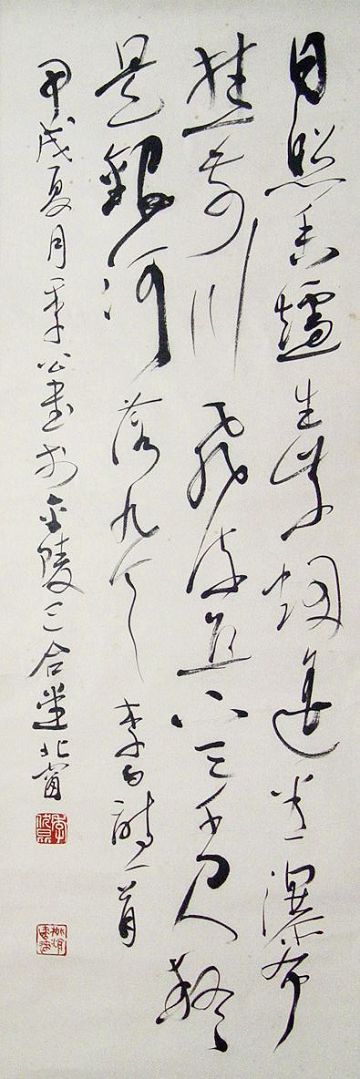 日照香爐生紫烟遥看瀑布
挂前川飛流直下三千尺疑
是銀河落九天 李白詩一首
甲戌夏月季公書於金陵三合堂北窗